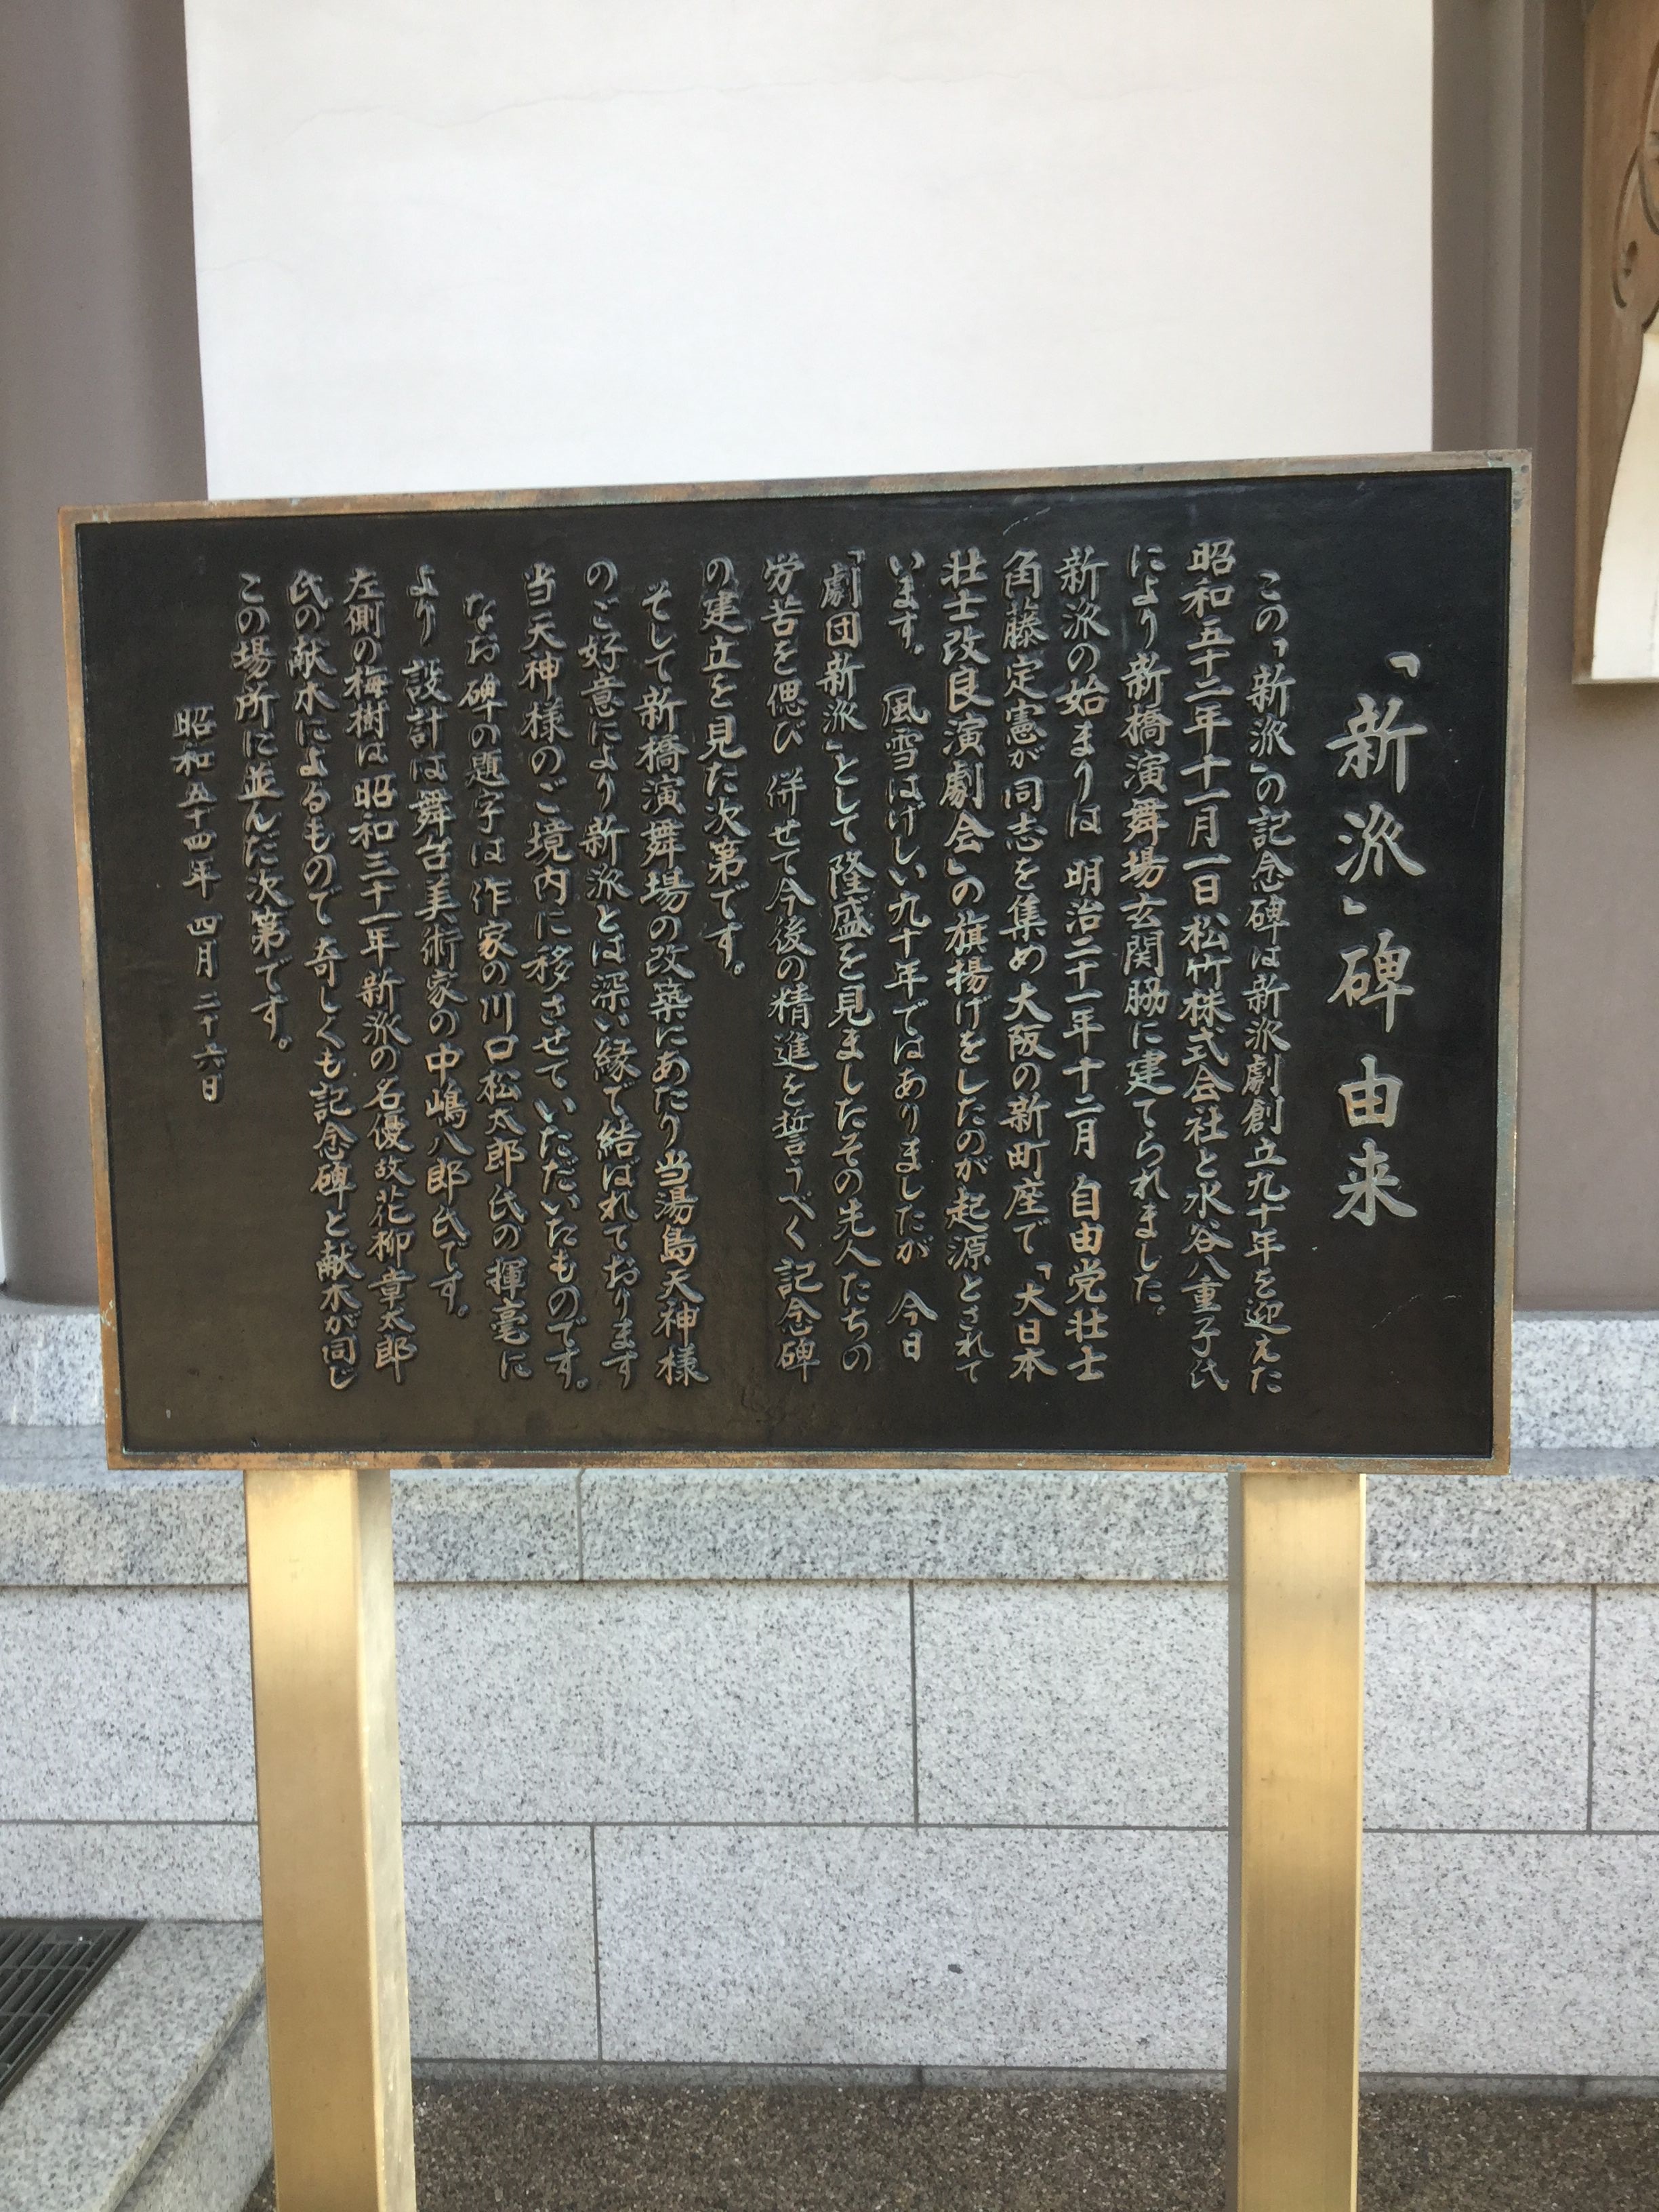 「新派」碑 由来
この「新派」の記念碑は新派劇創立九十年を迎えた
昭和五十二年十一月一日松竹株式会社と水谷八重子氏
により新橋演舞場玄関脇に建てられました。
新派の始まりは 明治二十一年十二月 自由党壮士
角藤定憲が同志を集め大阪の新町座で「大日本
壮士改良演劇会」の旗揚げをしたのが起源とされて
います。 風雪はげしい九十年ではありましたが 今日
「劇団新派」として隆盛を見ましたその先人たちの
労苦を偲び 併せて今後の精進を誓うべく記念碑
の建立を見た次第です。
そして新橋演舞場の改築にあたり当湯島天神様
のご好意により新派とは深い縁で結ばれております
当天神様のご境内に移させていただいたものです。
なお碑の題字は 作家の川口松太郎氏の揮毫に
より 設計は舞台美術家の中嶋八郎氏です。
左側の梅樹は昭和三十一年新派の名優故花柳章太郎
氏の献木によるもので奇しくも記念碑と献木が同じ
この場所に並んだ次第です。
昭和五十四年 四月 二十六日